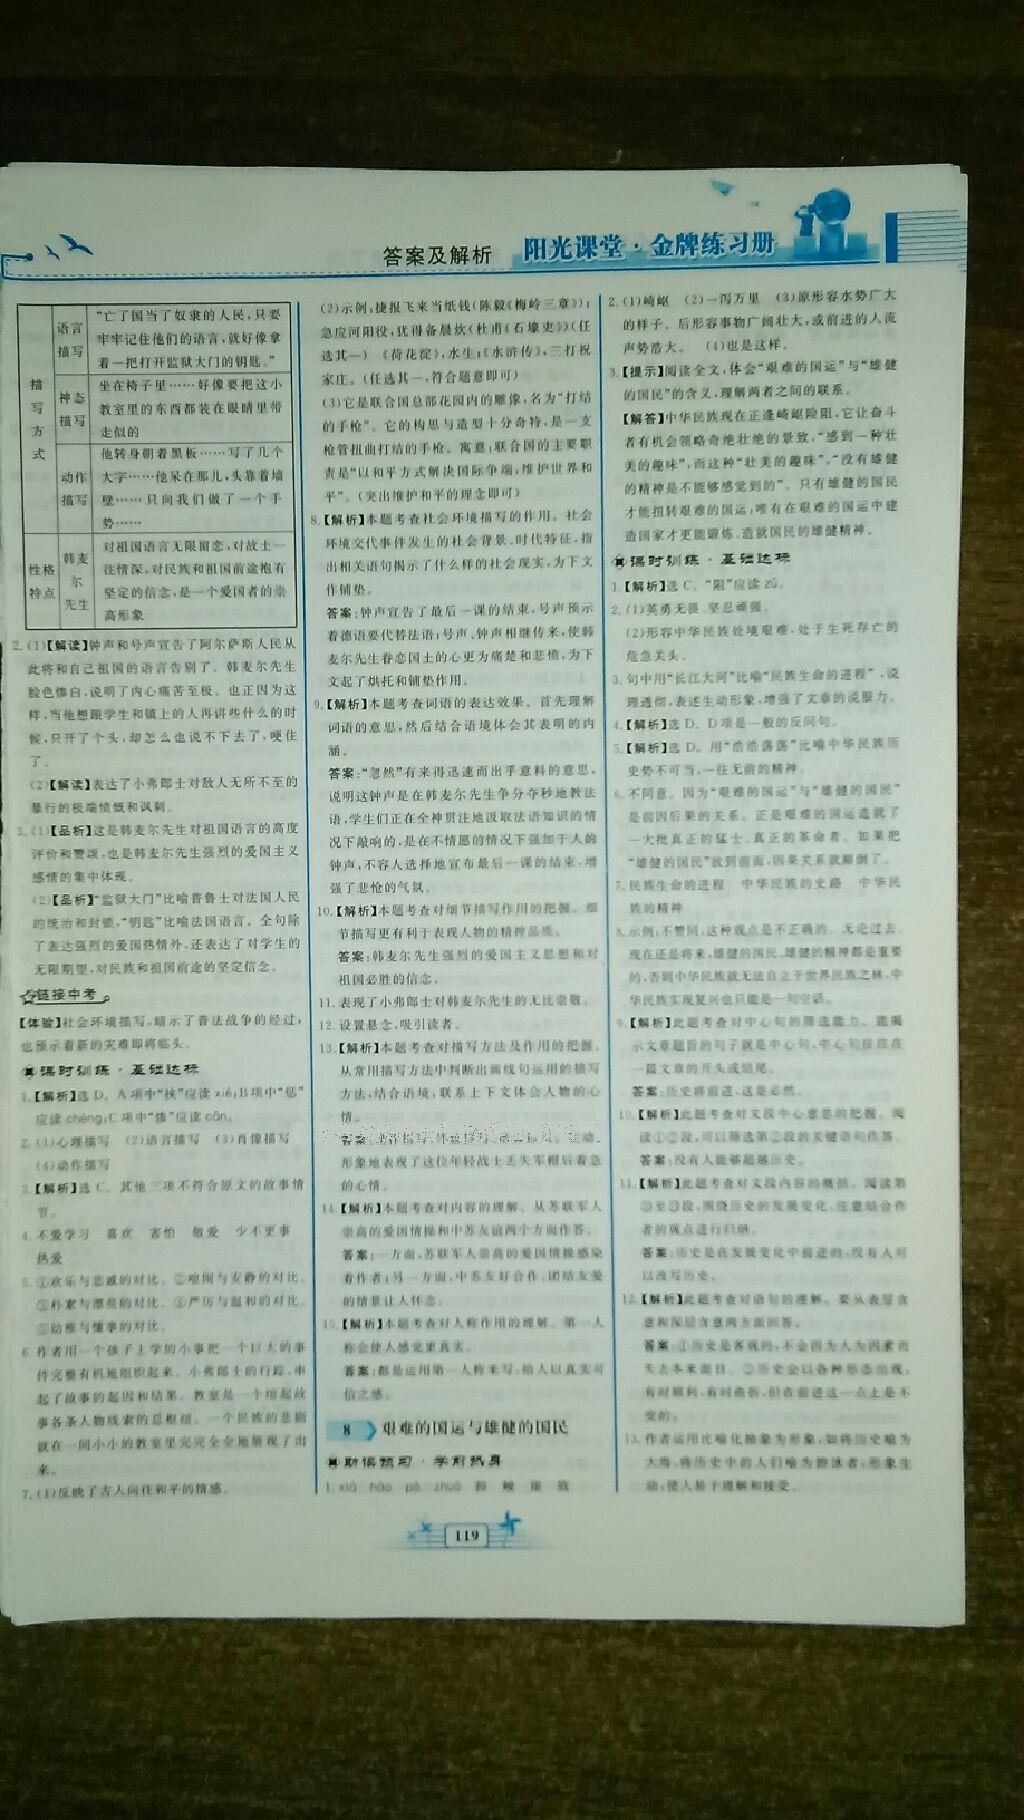 答案及解析 阳光课堂·金牌练习册
描写方式
语言描写
“亡了国当了奴隶的人民,只要
牢牢记住他们的语言,就好像拿
着一把打开监狱大门的钥匙。”
神态描写
坐在椅子里……好像要把这小
教室里的东西都装在眼睛里带
走似的
动作描写
他转身朝着黑板……写了几个
大字……他呆在那儿,头靠着墙
壁……只向我们做了一个手
势……
性格特点
韩麦尔先生
对祖国语言无限留恋,对故土一
往情深,对民族和祖国前途抱有
坚定的信念,是一个爱国者的崇
高形象
2.(1)【解读】钟声和号声宣告了阿尔萨斯人民从
此将和自己祖国的语言告别了。韩麦尔先生
脸色惨白,说明了内心痛苦至极。也正因为这
样,当他想跟学生和镇上的人再讲些什么的时
候,只开了个头,却怎么也说不下去了,哽住
了。
(2)【解读】表达了小弗郎士对敌人无所不至的
暴行的极端愤慨和讽刺。
3.(1)【品析】这是韩麦尔先生对祖国语言的高度
评价和赞颂,也是韩麦尔先生强烈的爱国主义
感情的集中体现。
(2)【品析】“监狱大门”比喻普鲁士对法国人民
的统治和封锁,“钥匙”比喻法国语言。全句除
了表达强烈的爱国热情外,还表达了对学生的
无限期望,对民族和祖国前途的坚定信念。
链接中考
【体验】社会环境描写,暗示了普法战争的经过,
也预示着新的灾难即将临头。
课时训练·基础达标
1.【解析】选D。A项中“挟”应读xié;B项中“惩”
应读chéng;C项中“惨”应读cǎn。
2.(1)心理描写 (2)语言描写 (3)肖像描写
(4)动作描写
3.【解析】选C。其他三项不符合原文的故事情
节。
4.不爱学习 喜欢 害怕 敬爱 少不更事
热爱
5.①欢乐与悲戚的对比。②喧闹与安静的对比。
③朴素与漂亮的对比。④严厉与温和的对比。
⑤幼稚与懂事的对比。
6.作者用一个孩子上学的小事把一个巨大的事
件完整有机地组织起来。小弗郎士的行踪,串
起了故事的起因和结果。教室是一个维起故
事各条人物线索的总枢纽。一个民族的悲剧
就在一间小小的教室里完完全全地展现了出
来。
7.(1)反映了古人向往和平的情感。
(2)示例:捷报飞来当纸钱(陈毅《梅岭三章》);
急应河阳役,犹得备晨炊(杜甫《石壕吏》)(任
选其一) 《荷花淀》,水生;《水浒传》,三打祝
家庄。(任选其一,符合题意即可)
(3)它是联合国总部花园内的雕像,名为“打结
的手枪”。它的构思与造型十分奇特,是一支
枪管扭曲打结的手枪。寓意:联合国的主要职
责是“以和平方式解决国际争端,维护世界和
平”。(突出维护和平的理念即可)
8.【解析】本题考查社会环境描写的作用。社会
环境交代事件发生的社会背景、时代特征,指
出相关语句揭示了什么样的社会现实,为下文
作铺垫。
答案:钟声宣告了最后一课的结束,号声预示
着德语要代替法语;号声、钟声相继传来,使韩
麦尔先生眷恋国土的心更为痛楚和悲愤,为下
文起了烘托和铺垫作用。
9.【解析】本题考查词语的表达效果。首先理解
词语的意思,然后结合语境体会其表明的内
涵。
答案:“忽然”有来得迅速而出乎意料的意思,
说明这钟声是在韩麦尔先生争分夺秒地教法
语,学生们正在全神贯注地汲取法语知识的情
况下敲响的,是在不情愿的情况下强加于人的
钟声,不容人选择地宣布最后一课的结束,增
强了悲怆的气氛。
10.【解析】本题考查对细节描写作用的把握。细
节描写更有利于表现人物的精神品质。
答案:韩麦尔先生强烈的爱国主义思想和对
祖国必胜的信念。
11.表现了小弗郎士对韩麦尔先生的无比崇敬。
12.设置悬念,吸引读者。
13.【解析】本题考查对描写方法及作用的把握。
从常用描写方法中判断出画线句运用的描写
方法,结合语境,联系上下文体会人物的心
情。
形象地表现了这位年轻战士丢失军帽后着急
的心情。
14.【解析】本题考查对内容的理解。从苏联军人
崇高的爱国情操和中苏友谊两个方面作答。
答案:一方面,苏联军人崇高的爱国情操感染
着作者;另一方面,中苏友好合作、团结友爱
的情景让人怀念。
15.【解析】本题考查对人称作用的理解。第一人
称会使人感觉更真实。
答案:都是运用第一人称来写,给人以真实可
信之感。
8 艰难的国运与雄健的国民
助读预习·学前热身
1.xiá hào pō zhuó
2.(1)崎岖 (2)一泻万里 (3)原形容水势广大
的样子。后形容事物广阔壮大,或前进的人流
声势浩大。 (4)也是这样。
3.【提示】阅读全文,体会“艰难的国运”与“雄健
的国民”的含义,理解两者之间的联系。
【解答】中华民族现在正逢崎岖险阻,它让奋斗
者有机会领略奇绝壮绝的景致,“感到一种壮
美的趣味”,而这种“壮美的趣味”,“没有雄健
的精神是不能够感觉到的”。只有雄健的国民
才能扭转艰难的国运,唯有在艰难的国运中建
造国家才更能锻炼、造就国民的雄健精神。
课时训练·基础达标
1.【解析】选C。“阻”应读zǔ。
2.(1)英勇无畏、坚忍顽强。
(2)形容中华民族处境艰难,处于生死存亡的
危急关头。
3.句中用“长江大河”比喻“民族生命的进程”,说
理透彻,表述生动形象,增强了文章的说服力。
4.【解析】选D。D项是一般的反问句。
5.【解析】选D。用“浩浩荡荡”比喻中华民族历
史势不可当、一往无前的精神。
6.不同意。因为“艰难的国运”与“雄健的国民”
是前因后果的关系。正是艰难的国运造就了
一大批真正的猛士、真正的革命者。如果把
“雄健的国民”放到前面,因果关系就颠倒了。
7.民族生命的进程 中华民族的史路 中华民
族的精神
8.示例:不赞同,这种观点是不正确的。无论过去、
现在还是将来,雄健的国民、雄健的精神都是重要
的,否则中华民族就无法自立于世界民族之林,中
华民族实现复兴也只能是一句空话。
9.【解析】此题考查对中心句的筛选能力。能揭
示文章题旨的句子就是中心句,中心句往往在
一篇文章的开头或结尾。
答案:历史将前进,这是必然。
10.【解析】此题考查对文段中心意思的把握。阅
读①②段,可以筛选第②段的关键语句作答。
答案:没有人能够超越历史。
11.【解析】此题考查对文段内容的概括。阅读第
③至⑤段,围绕历史的发展变化,注意结合作
者的观点进行归纳。
答案:历史是在发展变化中前进的,没有人可
以改写历史。
12.【解析】此题考查对语句的理解。要从表层含
意和深层含意两方面回答。
答案:①历史是客观的,不会因为人为因素而
失去本来面目。②历史会以各种形态出现,
有时顺利,有时曲折,但在前进这一点上是不
变的。
13.作者运用比喻化抽象为形象,如将历史喻为
大海,将历史中的人们喻为游泳者,形象生
动,使人易于理解和接受。
119